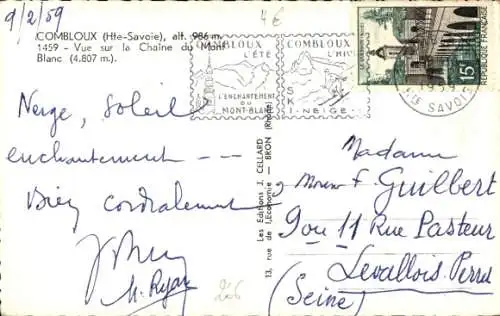 9/2/59
4€
COMBLOUX (Hte-Savoie), alt. 986 m.
1459 - Vue sur la Chaîne du Mont-
Blanc (4.807 m.).
COMBLOUX
L'ÉTÉ
L'ENCHANTEMENT
DU
MONT-BLANC
COMBLOUX
SKI-NEIGE
RÉPUBLIQUE FRANÇAISE
15
1959
HTE SAVOIE
Neige, Soleil
enchantement ---
Bien cordialement
M. Ryan
206
Les Editions J. CELLARD
13, rue de l'Economie - BRON (Rhône)
Madame
& Monsieur F. Guilbert
9 ou 11 Rue Pasteur
Levallois Perret
(Seine)